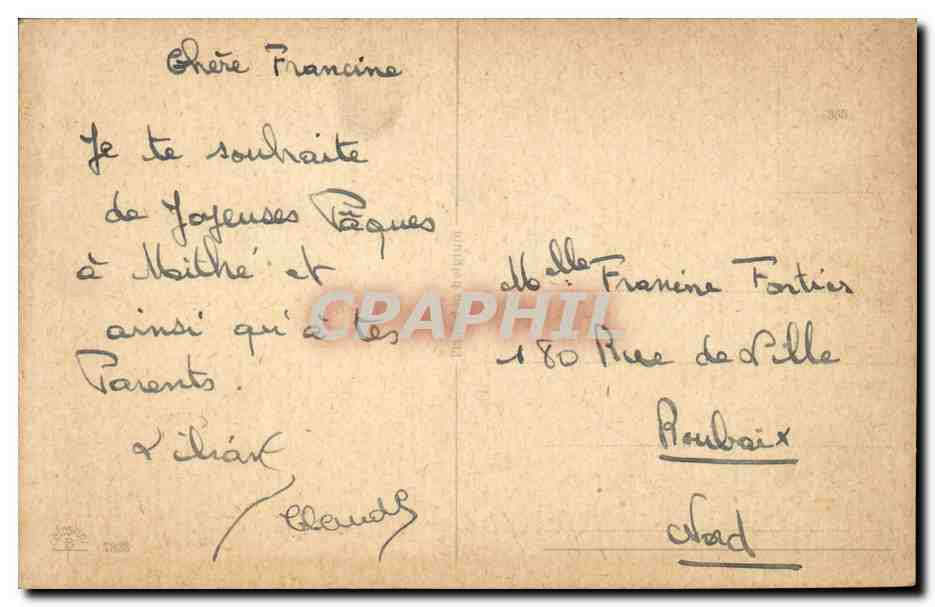 Chère Francine
Je te souhaite
de Joyeuses Pâques
à Maïthé et
ainsi qu'à tes
Parents.
Lilian
Claude
Melle Francine Fortier
180 Rue de Lille
Roubaix
Nord
CPAPHIL